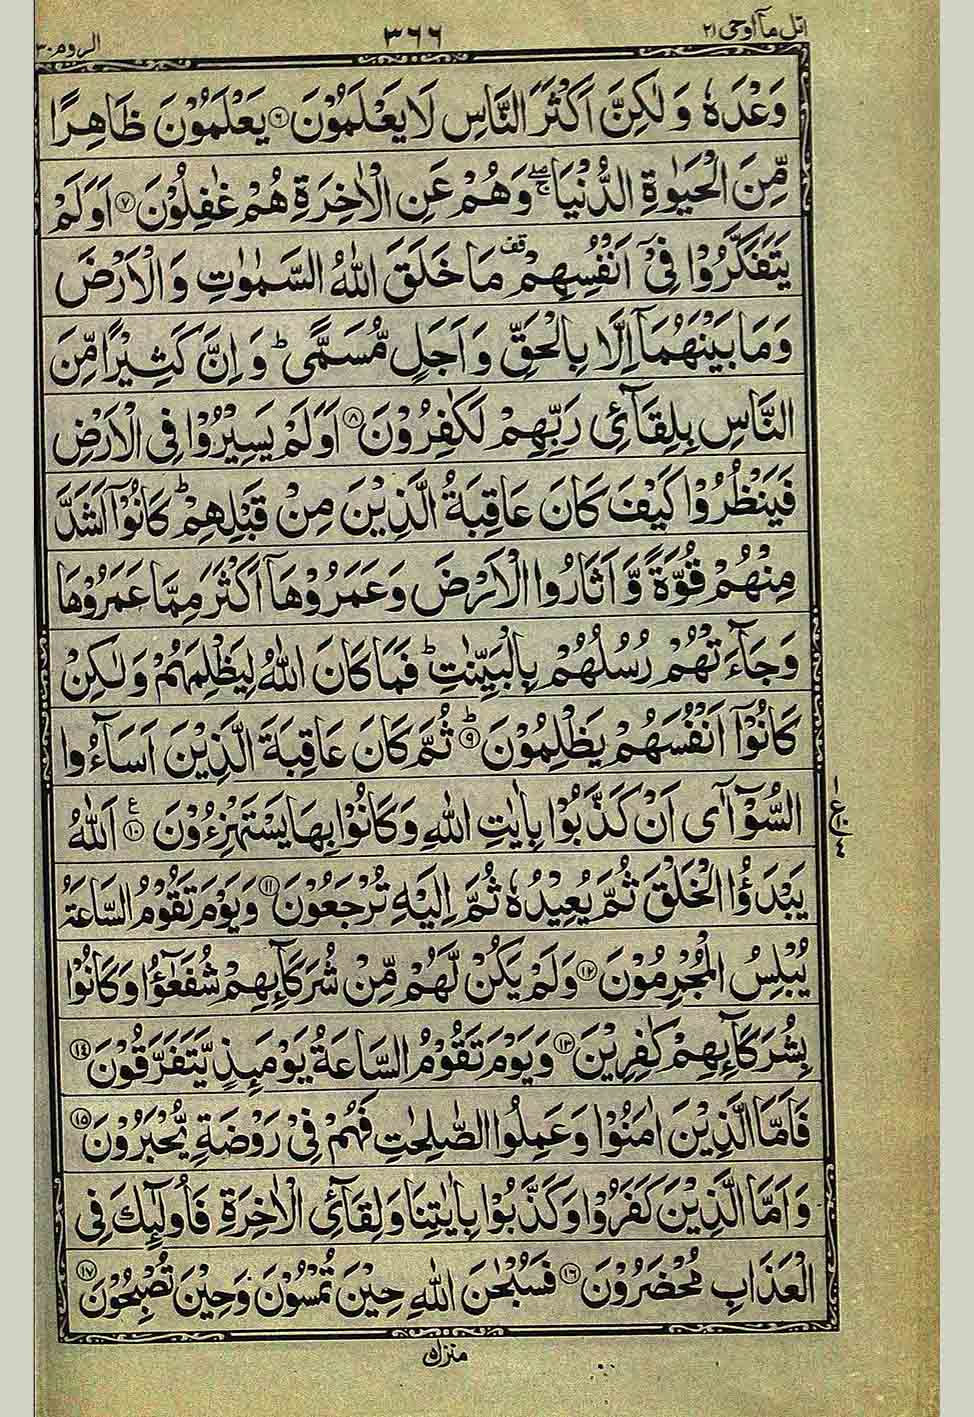 اتل مآ اوحی ٢١ ٣٦٦ الروم ٣٠
وَعْدَهٗ وَلٰكِنَّ اَكْثَرَ النَّاسِ لَا يَعْلَمُوْنَ ۝٦ يَعْلَمُوْنَ ظَاهِرًا
مِّنَ الْحَيٰوةِ الدُّنْيَا ۖۚ وَهُمْ عَنِ الْاٰخِرَةِ هُمْ غٰفِلُوْنَ ۝٧ اَوَلَمْ
يَتَفَكَّرُوْا فِىْٓ اَنْفُسِهِمْ قف مَا خَلَقَ اللّٰهُ السَّمٰوٰتِ وَالْاَرْضَ
وَمَا بَيْنَهُمَآ اِلَّا بِالْحَقِّ وَاَجَلٍ مُّسَمًّى ؕ وَاِنَّ كَثِيْرًا مِّنَ
النَّاسِ بِلِقَآئِ رَبِّهِمْ لَكٰفِرُوْنَ ۝٨ اَوَلَمْ يَسِيْرُوْا فِى الْاَرْضِ
فَيَنْظُرُوْا كَيْفَ كَانَ عَاقِبَةُ الَّذِيْنَ مِنْ قَبْلِهِمْ ؕ كَانُوْٓا اَشَدَّ
مِنْهُمْ قُوَّةً وَّاَثَارُوا الْاَرْضَ وَعَمَرُوْهَآ اَكْثَرَ مِمَّا عَمَرُوْهَا
وَجَآءَتْهُمْ رُسُلُهُمْ بِالْبَيِّنٰتِ ؕ فَمَا كَانَ اللّٰهُ لِيَظْلِمَهُمْ وَلٰكِنْ
كَانُوْٓا اَنْفُسَهُمْ يَظْلِمُوْنَ ؕ۝٩ ثُمَّ كَانَ عَاقِبَةَ الَّذِيْنَ اَسَآءُوا
السُّوْٓآٰى اَنْ كَذَّبُوْا بِاٰيٰتِ اللّٰهِ وَكَانُوْا بِهَا يَسْتَهْزِءُوْنَ ۝١٠ ع اَللّٰهُ
يَبْدَؤُا الْخَلْقَ ثُمَّ يُعِيْدُهٗ ثُمَّ اِلَيْهِ تُرْجَعُوْنَ ۝١١ وَيَوْمَ تَقُوْمُ السَّاعَةُ
يُبْلِسُ الْمُجْرِمُوْنَ ۝١٢ وَلَمْ يَكُنْ لَّهُمْ مِّنْ شُرَكَآئِهِمْ شُفَعٰٓؤُا وَكَانُوْا
بِشُرَكَآئِهِمْ كٰفِرِيْنَ ۝١٣ وَيَوْمَ تَقُوْمُ السَّاعَةُ يَوْمَئِذٍ يَّتَفَرَّقُوْنَ ۝١٤
فَاَمَّا الَّذِيْنَ اٰمَنُوْا وَعَمِلُوا الصّٰلِحٰتِ فَهُمْ فِىْ رَوْضَةٍ يُّحْبَرُوْنَ ۝١٥
وَاَمَّا الَّذِيْنَ كَفَرُوْا وَكَذَّبُوْا بِاٰيٰتِنَا وَلِقَآئِ الْاٰخِرَةِ فَاُولٰٓئِكَ فِى
الْعَذَابِ مُحْضَرُوْنَ ۝١٦ فَسُبْحٰنَ اللّٰهِ حِيْنَ تُمْسُوْنَ وَحِيْنَ تُصْبِحُوْنَ ۝١٧
منزل ٥